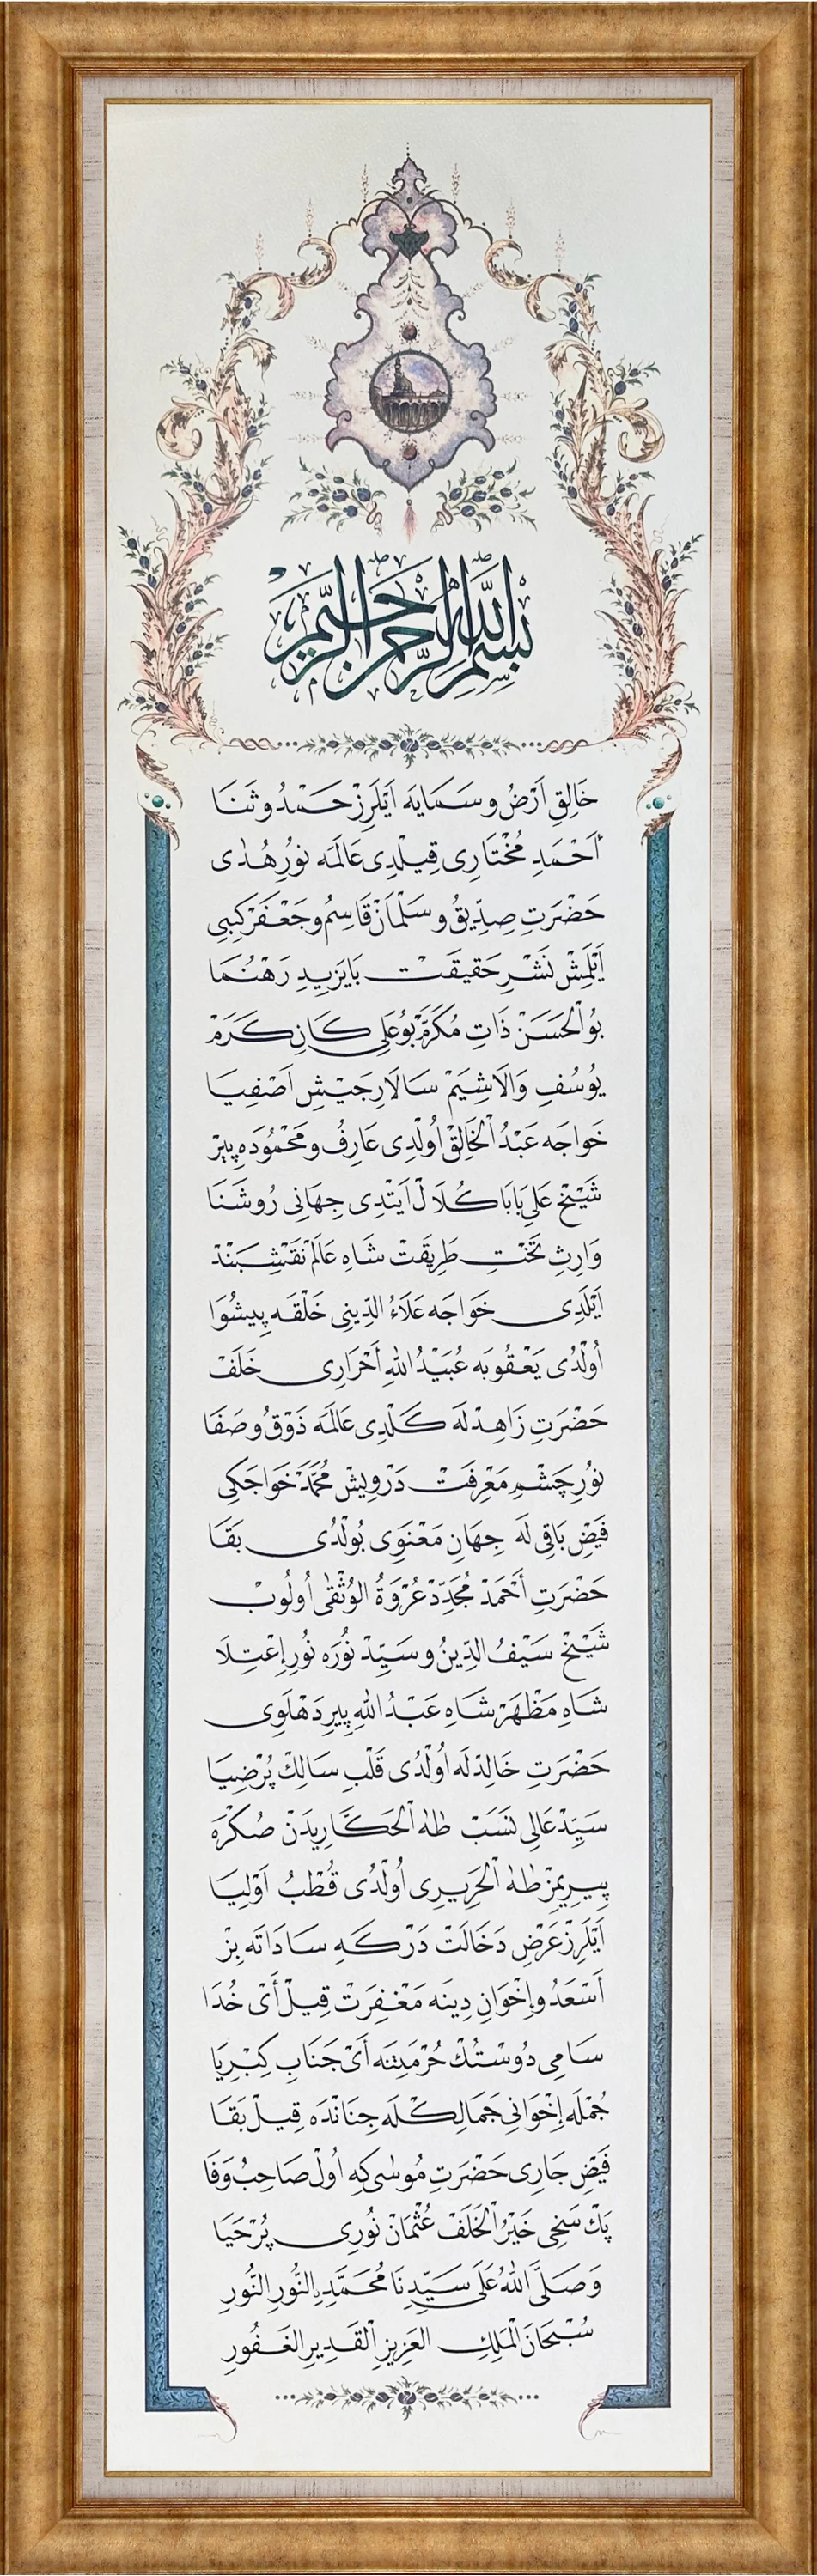 بِسْمِ اللّٰهِ الرَّحْمٰنِ الرَّحِيمِ
خَالِقِ اَرْضُ و سَمَايَه اَيْلَرِزْ حَمْدُ و ثَنَا
أَحْمَدِ مُخْتَارِى قِيلْدِى عَالَمَه نُورِ هُدٰى
حَضْرَتِ صِدِّيقُ و سَلْمَانْ قَاسِمُ و جَعْفَرْ كِبِى
اَيْلَمِشْ نَشْرِ حَقِيقَتْ بَايَزِيدِ رَهْنُمَا
بُو الْحَسَنْ ذَاتِ مُكَرَّمْ بُوعَلِى كَانِ كَرَمْ
يُوسُفِ وَالَاشِيَمْ سَالَارِ جَيْشِ اَصْفِيَا
خَواجَه عَبْدُ الْخَالِقْ اُولْدِى عَارِفُ و مَحْمُودَه پِيرْ
شَيْخْ عَلِى بَابَا كُلَالْ اَيتْدِى جِهَانِى رُوشَنَا
وَارِثِ تَخْتِ طَرِيقَتْ شَاهِ عَالَمْ نَقْشِبَنْدْ
اَيْلَدِى خَوَاجَه عَلَاءُ الدِّينِى خَلْقَه پِيشُوَا
اُولْدُى يَعْقُوبَه عُبَيْدُ اللّٰهِ اَحْرَارِى خَلَفْ
حَضْرَتِ زَاهِدْلَه كَلْدِى عَالَمَه ذَوْقُ و صَفَا
نُورِ چَشْمِ مَعْرِفَتْ دَرْوِيشْ مُحَمَّدْ خَوَاجَكِى
فَيْضِ بَاقِى لَه جِهَانِ مَعْنَوِى بُولْدُى بَقَا
حَضْرَتِ أَحْمَدْ مُجَدِّدْ عُرْوَةُ الْوُثْقٰى اُولُوبْ
شَيْخْ سَيْفُ الدِّينُ و سَيِّدْ نُورَه نُورِ اِعْتِلَا
شَاهِ مَظْهَرْ شَاهِ عَبْدُ اللّٰهِ پِيرِ دَهْلَوِى
حَضْرَتِ خَالِدْلَه اُولْدُى قَلْبِ سَالِكْ پُرْضِيَا
سَيِّدْ عَالِى نَسَبْ طٰهٰ الْحَكَّارِيدَنْ صُكْرَه
پِيرِيمِزْ طٰهٰ الْحَرِيرِى اُولْدُى قُطْبُ اَوْلِيَا
اَيْلَرِزْ عَرْضِ دَخَالَتْ دَرْكَهِ سَادَاتَه بِزْ
أَسْعَدُ و اِخْوَانِ دِينَه مَغْفِرَتْ قِيلْ أَىْ خُدَا
سَامِى دُوسْتُكْ حُرْمَتِنَه أَىْ جَنَابِ كِبْرِيَا
جُمْلَه اِخْوَانِى جَمَالِكْلَه جِنَانْدَه قِيلْ بَقَا
فَيْضِ جَارِى حَضْرَتِ مُوسٰى كِه اُولْ صَاحِبُ وَفَا
پَكْ سَخِى خَيْرُ الْخَلَفْ عُثْمَانْ نُورِى پُرْحَيَا
وَصَلَّى اللّٰهُ عَلَى سَيِّدِنَا مُحَمَّدٍ النُّورِ النُّورِ
سُبْحَانَ الْمَلِكِ الْعَزِيزِ الْقَدِيرِ الْغَفُورِ